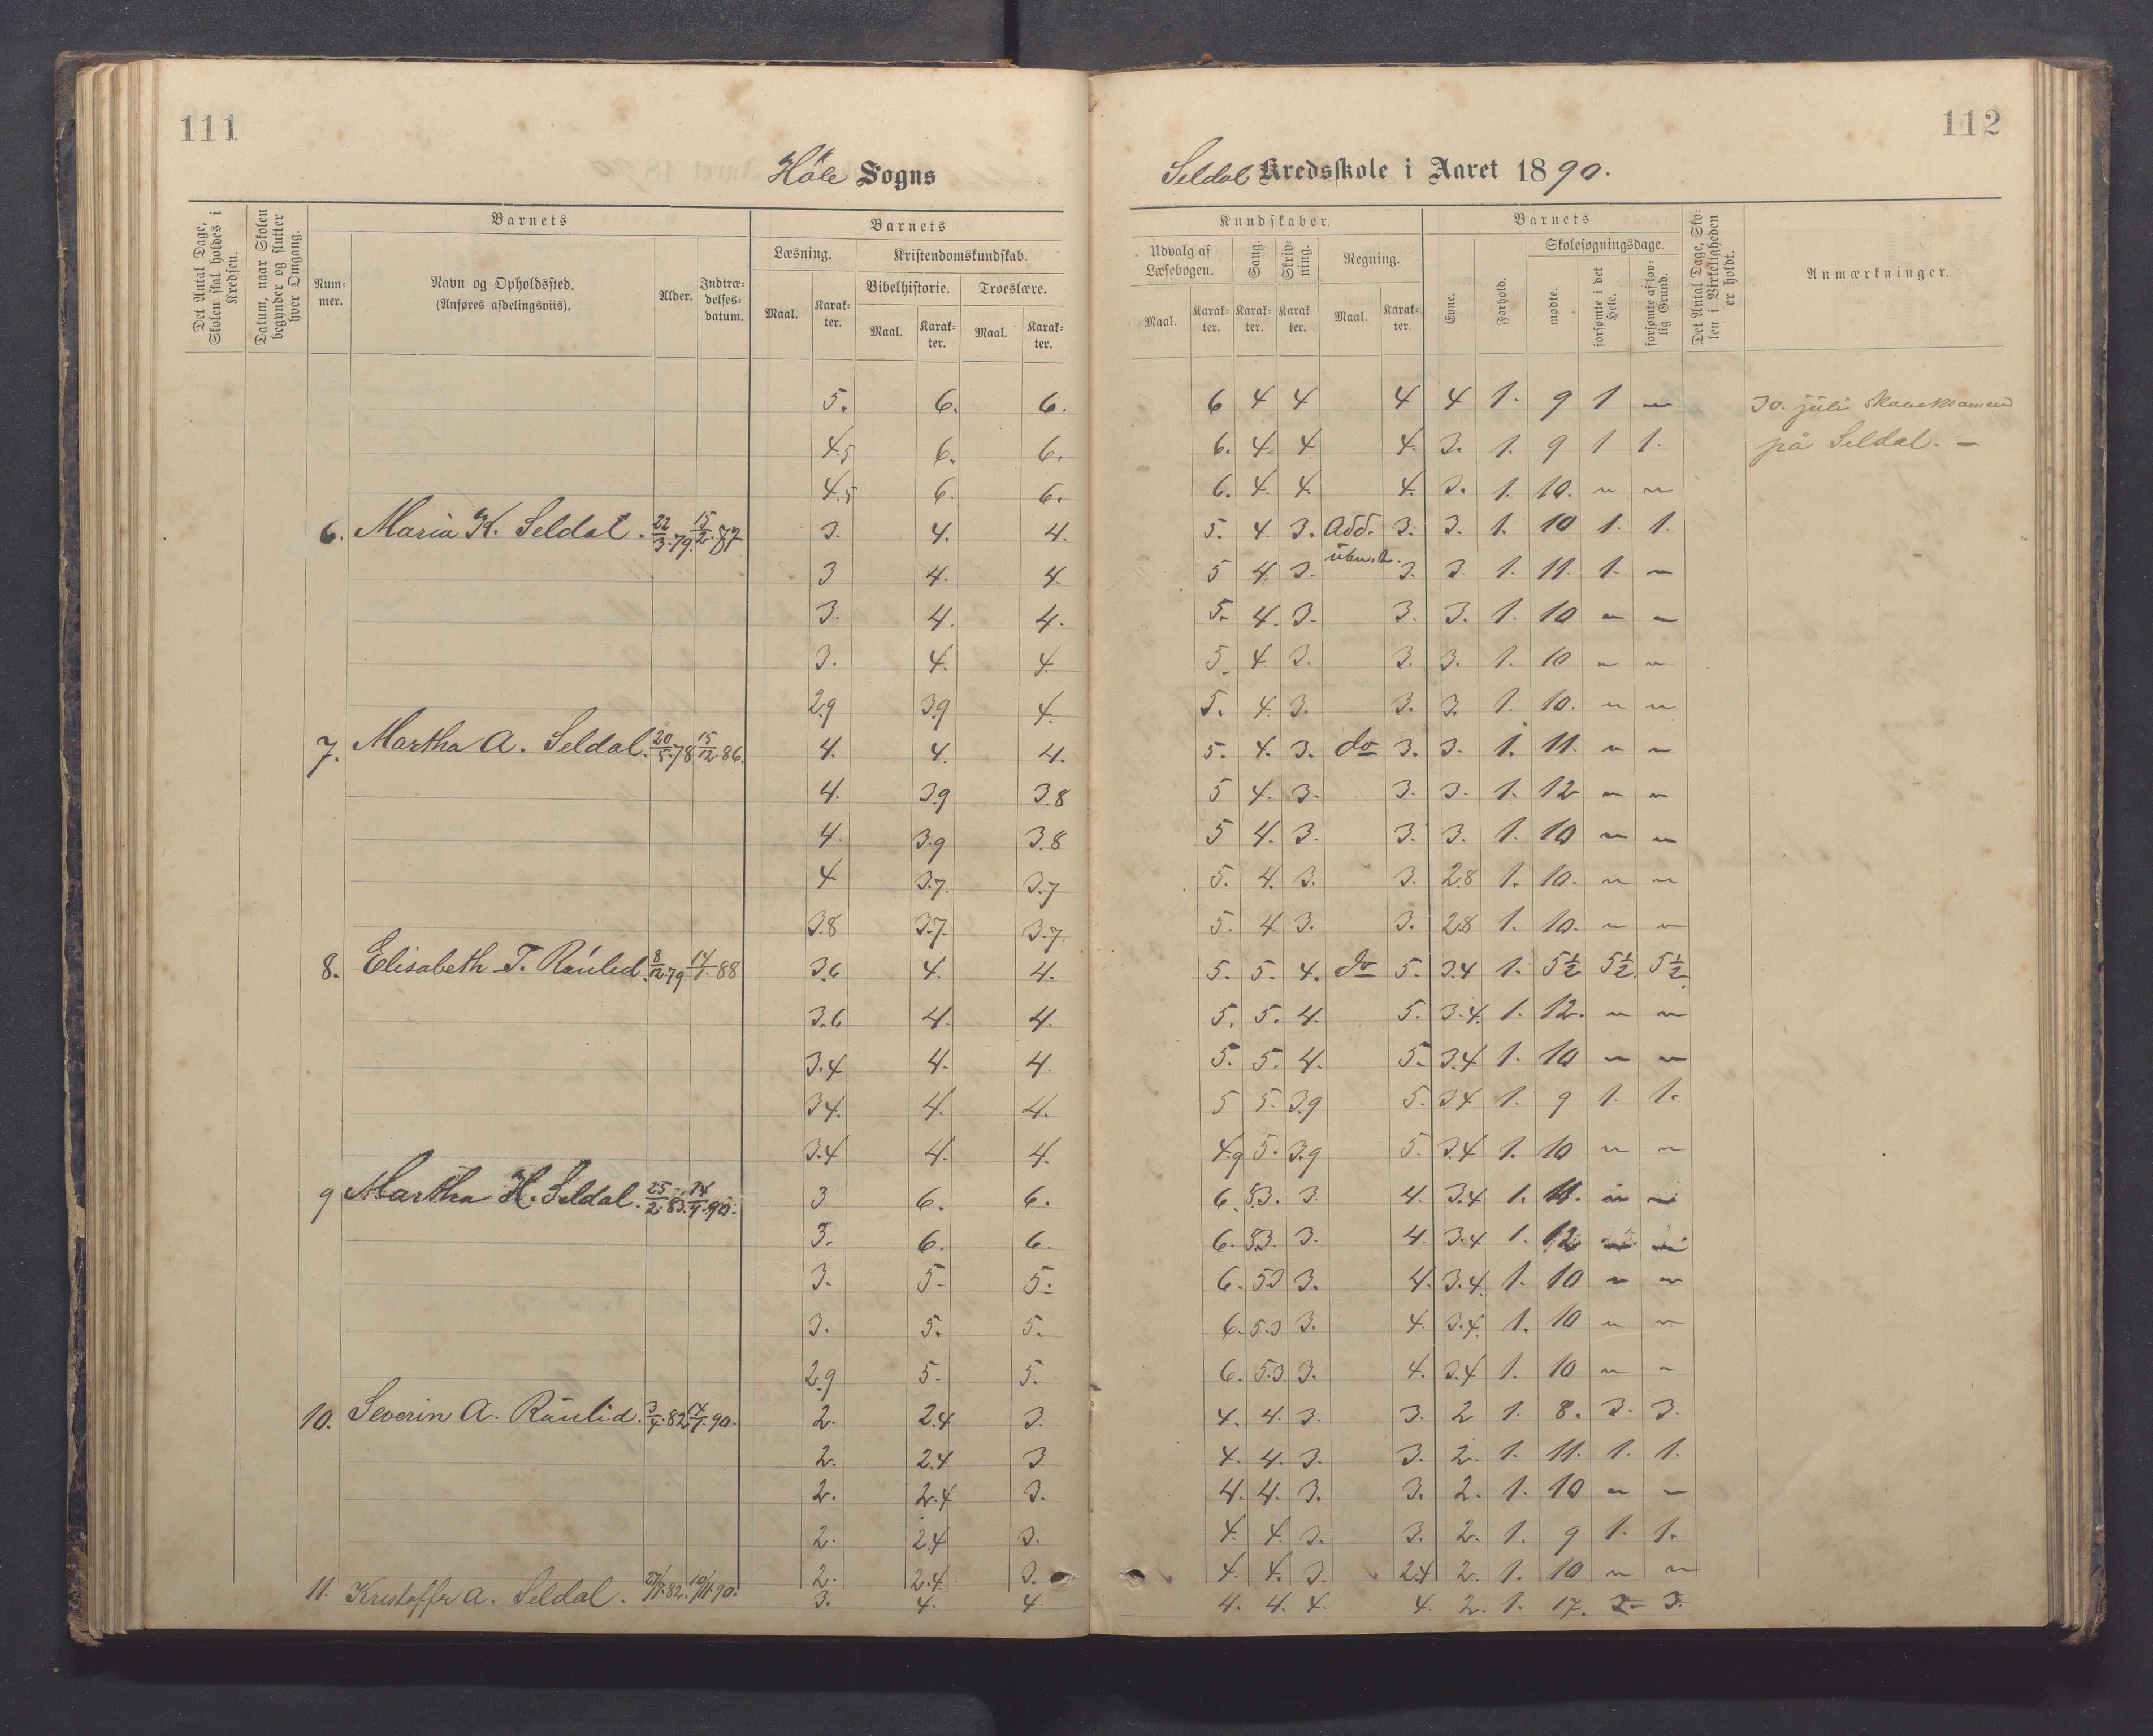 111
112
Høle Sogns
Seldal Kredsskole i Aaret 1890.
Det Antal Dage, Skolen skal holdes i Kredsen.
Datum, naar Skolen begynder og slutter hver Omgang.
Barnets
Num-mer.
Navn og Opholdssted.
(Anføres afdelingsviis).
Alder.
Indtræ-delses-datum.
Barnets
Læsning.
Maal.
Karak-ter.
Kristendomskundskab.
Bibelhistorie.
Maal.
Karak-ter.
Troeslære.
Maal.
Karak-ter.
Kundskaber.
Udvalg af Læsebogen.
Maal.
Karak-ter.
Sang.
Karak-ter.
Skriv-ning.
Karak ter.
Regning.
Maal.
Karak-ter.
Barnets
Evne.
Forhold.
Skolesøgningsdage.
mødte.
forsømte i det Hele.
forsømte af lov-lig Grund.
Det Antal Dage, Sko-len i Virkeligheden er holdt.
Anmærkninger.
5. 6. 6. 6 4 4 4 4 1. 9 1 — 30. juli
4.5 6. 6. 6. 4. 4 4. 3. 1. 9 1 1. på Seldal. —
4.5 6. 6. 6. 4. 4. 4. 3. 1. 10. " "
6. Maria K. Seldal. 22/3.79. 15/2.87 3. 4. 4. 5. 4. 3. Add. 3. 3. 1. 10 1. 1.
3 4. 4. 5 4. 3. 3. 3. 1. 11. 1. "
3. 4. 4. 5. 4. 3. 3. 3. 1. 10 " "
3. 4. 4. 5. 4. 3. 3. 3. 1. 10 " "
2.9 3.9 4. 5. 4. 3. 3. 3. 1. 10. " "
7. Martha A. Seldal. 20/5.78 15/12.86. 4. 4. 4. 5. 4. 3. do 3. 3. 1. 11. " "
4. 3.9 3.8 5 4. 3. 3. 3. 1. 12 " "
4. 3.9 3.8 5 4. 3. 3. 3. 1. 10 " "
4 3.7. 3.7 5. 4. 3. 3. 2.8 1. 10. " "
3.8 3.7. 3.7. 5. 4. 3. 3. 2.8 1. 10. " "
8. Elisabeth T. Rånlid. 8/12.79 14/1.88 3.6 4. 4. 5. 5. 4. do 5. 3.4 1. 5½ 5½. 5½.
3.6 4. 4. 5. 5. 4. 5. 3.4. 1. 12. " "
3.4 4. 4. 5. 5. 4. 5. 3.4 1. 10 " "
3.4. 4. 4. 5 5. 3.9 5. 3.4 1. 9 1. 1.
3.4 4. 4. 4.9 5. 3.9 5. 3.4 1. 10 " "
9 Martha H. Seldal. 25/2.83. 14/1.90. 3 6. 6. 6. 5.3. 3. 4. 3.4 1. 11. " "
3. 6. 6. 6. 5.3. 3. 4. 3.4 1. 12 " "
3. 5. 5. 6. 5.3 3. 4. 3.4. 1. 10 " "
3. 5. 5. 6. 5.3 3. 4. 3.4. 1. 10 " "
2.9 5. 5. 6. 5.3 3. 4. 3.4 1. 10 " "
10. Severin A. Rånlid. 3/4.82 14/1.90. 2. 2.4 3. 4. 4. 3. 3. 2 1. 8. 3. 3.
2. 2.4 3 4. 4. 3. 3. 2. 1. 11. 1. 1.
2. 2.4 3. 4. 4. 3. 3. 2. 1. 10 " "
2. 2.4 3. 4. 4. 3. 3. 2. 1. 9 1. 1.
2. 2.4. 3. 4. 4. 3. 2.4 2. 1. 10 " "
11. Kristoffer A. Seldal. 82. 10/11.90. 3. 4. 4. 4. 4. 4. 4. 2. 1. 17. 3. 3.